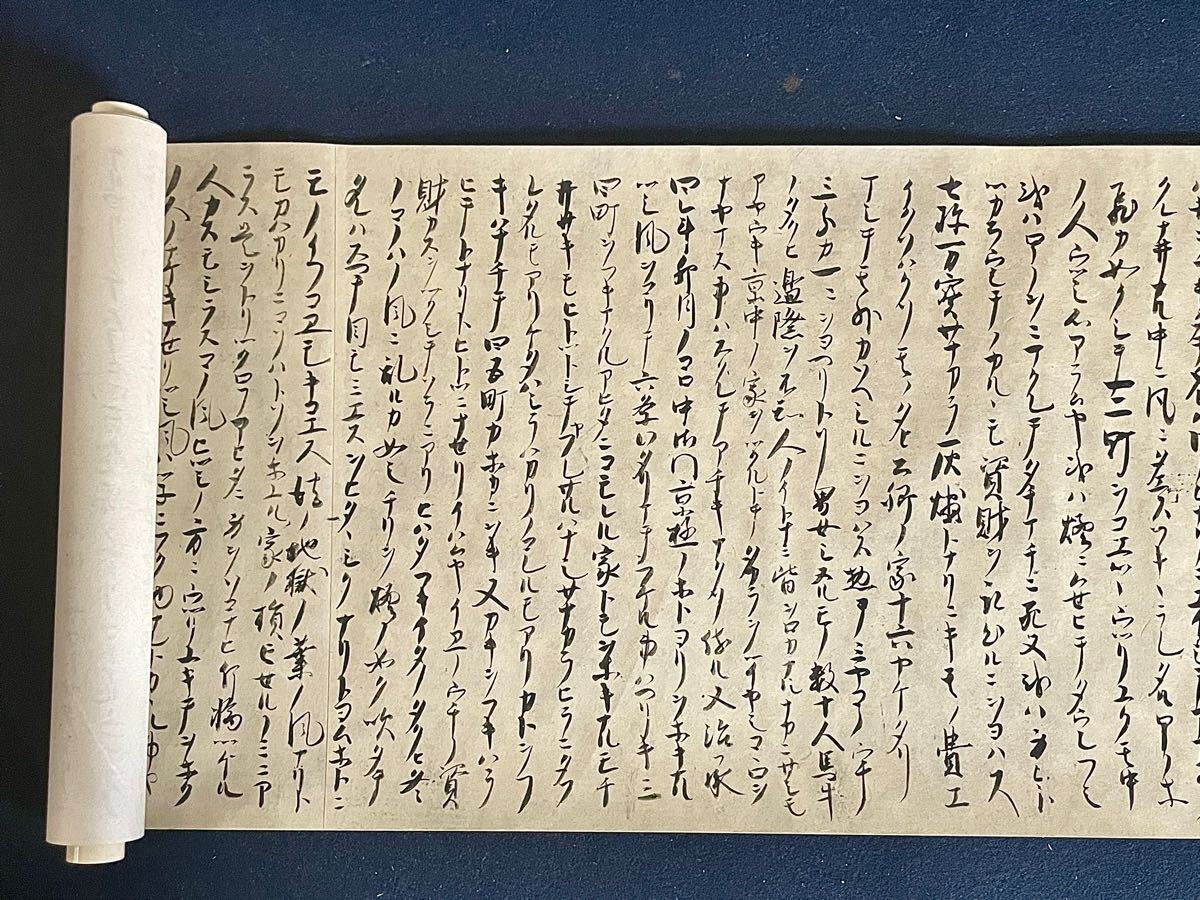 クレナヰナル中ニ風ニタエスフキヽラレタルホノホ
飛カ如クシテ一二町ヲコエツヽウツリユク其中
ノ人ウツシ心アラムヤ或ハ煙ニムセヒテタウレフシ
或ハホノホニマクレテタチマチニ死ヌ或ハ身ヒト
ツカラウシテノカルヽモ資財ヲ取出ルニヲヨハス
七珎万宝サナカラ灰燼トナリニキ其ノ費エ
イクソハクソ其ノタヒ公卿ノ家十六ヤケタリ
マシテ其外カソヘシルニヲヨハス惣テミヤコノウチ
三分カ一ニヲヨヘリトソ男女シヌルモノ数十人馬牛
ノタクヒ邊際ヲ不知人ノイトナミ皆ヲロカナルナカニサシモ
アヤウキ京中ノ家ヲツクルトテタカラヲツイヤシコヽロヲ
ナヤマス事ハスクレテアチキナクソ侍ル又治承
四年卯月ノコロ中御門京極ノホトヨリヲホキナル
ツシ風ヲコリテ六条ワタリマテフケル事ハヘリキ三
四町ヲフキマクルアヒタニコモレル家トモヲホキナルモチ
ヰサキモヒトツトシテヤフレサルハナシサナカラヒラニタフ
レタルモアリケタハシラハカリノコレルモアリカトヲフ
キハナチテ四五町カホカニヲキ又カキヲフキハラ
ヒテトナリトヒトツニナセリイハムヤイヱノウチノ資
財カスヲツクシテソラニアリヒハタフキイタノタクヒ冬
ノコノハノ風ニ乱ルカ如シチリヲ煙ノ如ク吹タテ
タレハスヘテ目モミエスヲヒタヽシクナリトヨムホトニ
モノイフコヱモキコエス彼ノ地獄ノ業ノ風ナリト
モカハカリニコソハトソヲホユル家ノ損亡セルノミニア
ラス是ヲトリツクロフアヒタニ身ヲソコナヒ片輪ツケル
人カスモシラスコノ風ヒツシノ方ニウツリユキテヲホク
ノ人ノナケキナセリツシ風ハツネニフクモノナレトカヽル事ヤ